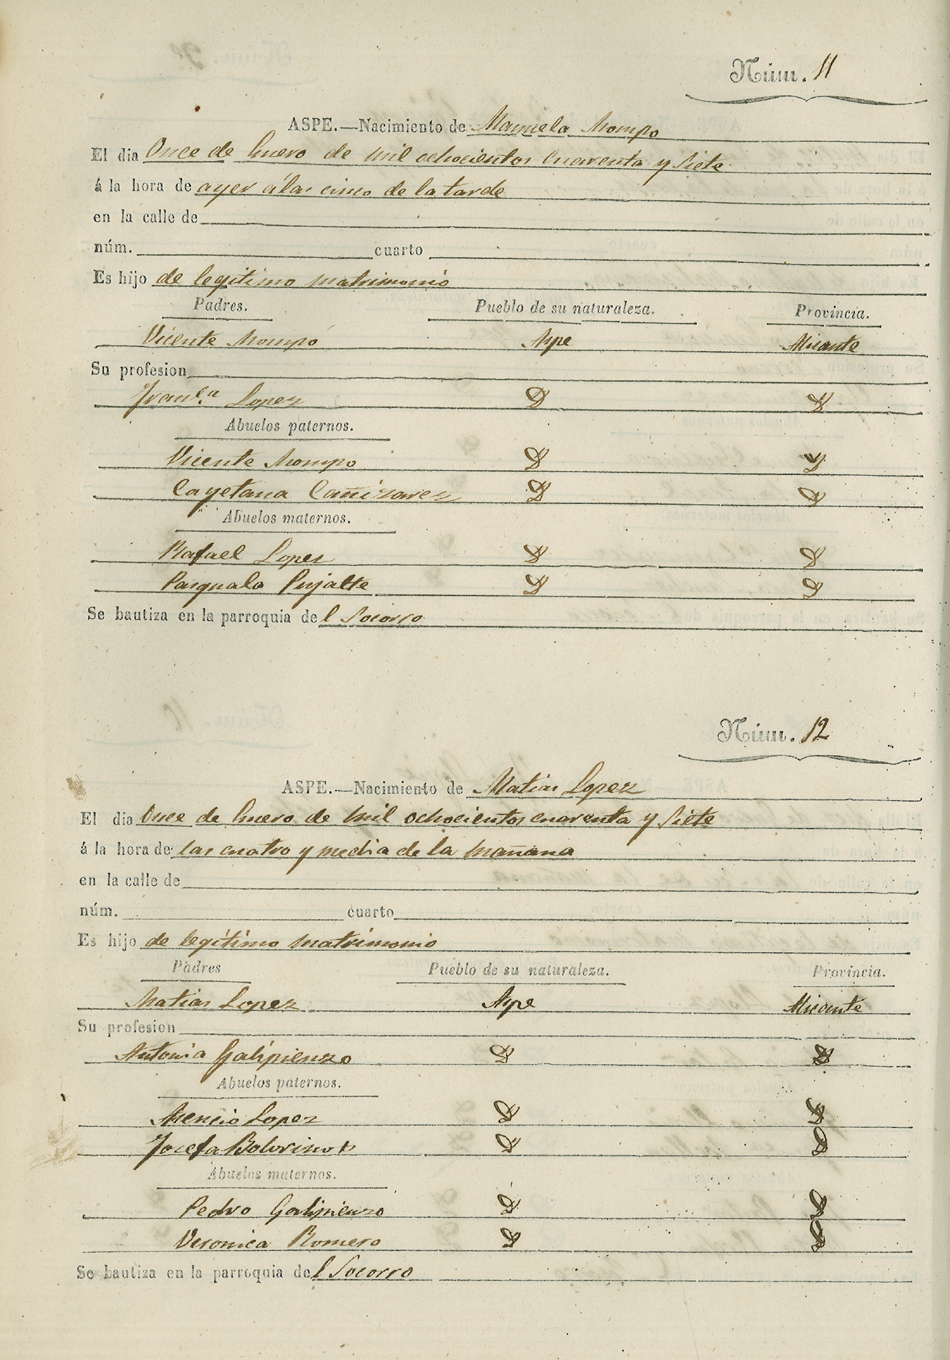 Núm. 11
ASPE.—Nacimiento de Manuela Mompo
El dia Once de Enero de mil ochocientos cuarenta y siete
á la hora de ayer á las cinco de la tarde
en la calle de
núm. cuarto
Es hijo de legitimo matrimonio
Padres. Pueblo de su naturaleza. Provincia.
Vicente Mompó Aspe Alicante
Su profesion
Franca Lopez D D
Abuelos paternos.
Vicente Mompo D D
Cayetana Cañizares D D
Abuelos maternos.
Rafael Lopez D D
Pasquala Pujalte D D
Se bautiza en la parroquia del Socorro
Núm. 12
ASPE.—Nacimiento de Matias Lopez
El dia Once de Enero de mil ochocientos cuarenta y siete
á la hora de las cuatro y media de la mañana
en la calle de
núm. cuarto
Es hijo de legitimo matrimonio
Padres Pueblo de su naturaleza. Provincia.
Matias Lopez Aspe Alicante
Su profesion
Antonia Galipienzo D D
Abuelos paternos.
Asencio Lopez D D
Josefa D D
Abuelos maternos.
Pedro Galipienzo D D
Veronica Romero D D
Se bautiza en la parroquia del Socorro